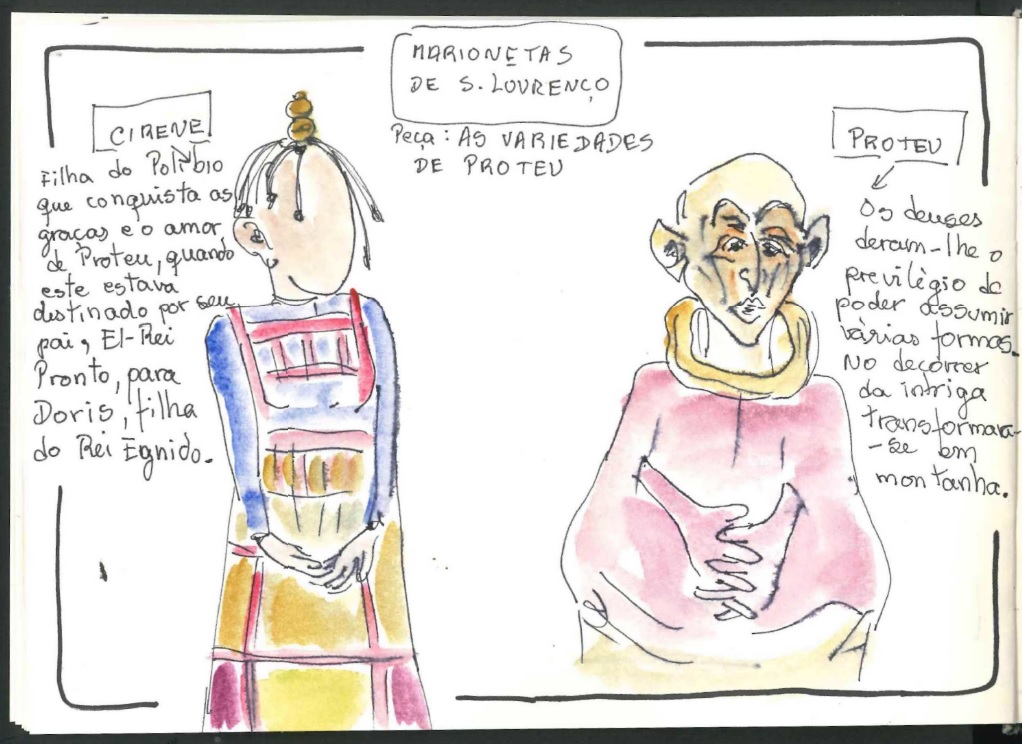 MARIONETAS
DE S. LOURENÇO
Peça: AS VARIEDADES
DE PROTEU
CIRENE
Filha do Políbio
que conquista as
graças e o amor
de Proteu, quando
este estava
destinado por seu
pai, El-Rei
Pronto, para
Doris, filha
do Rei Egnido.
PROTEU
Os deuses
deram-lhe o
previlègio de
poder assumir
várias formas.
No decorrer
da intriga
transformara-
-se em
montanha.